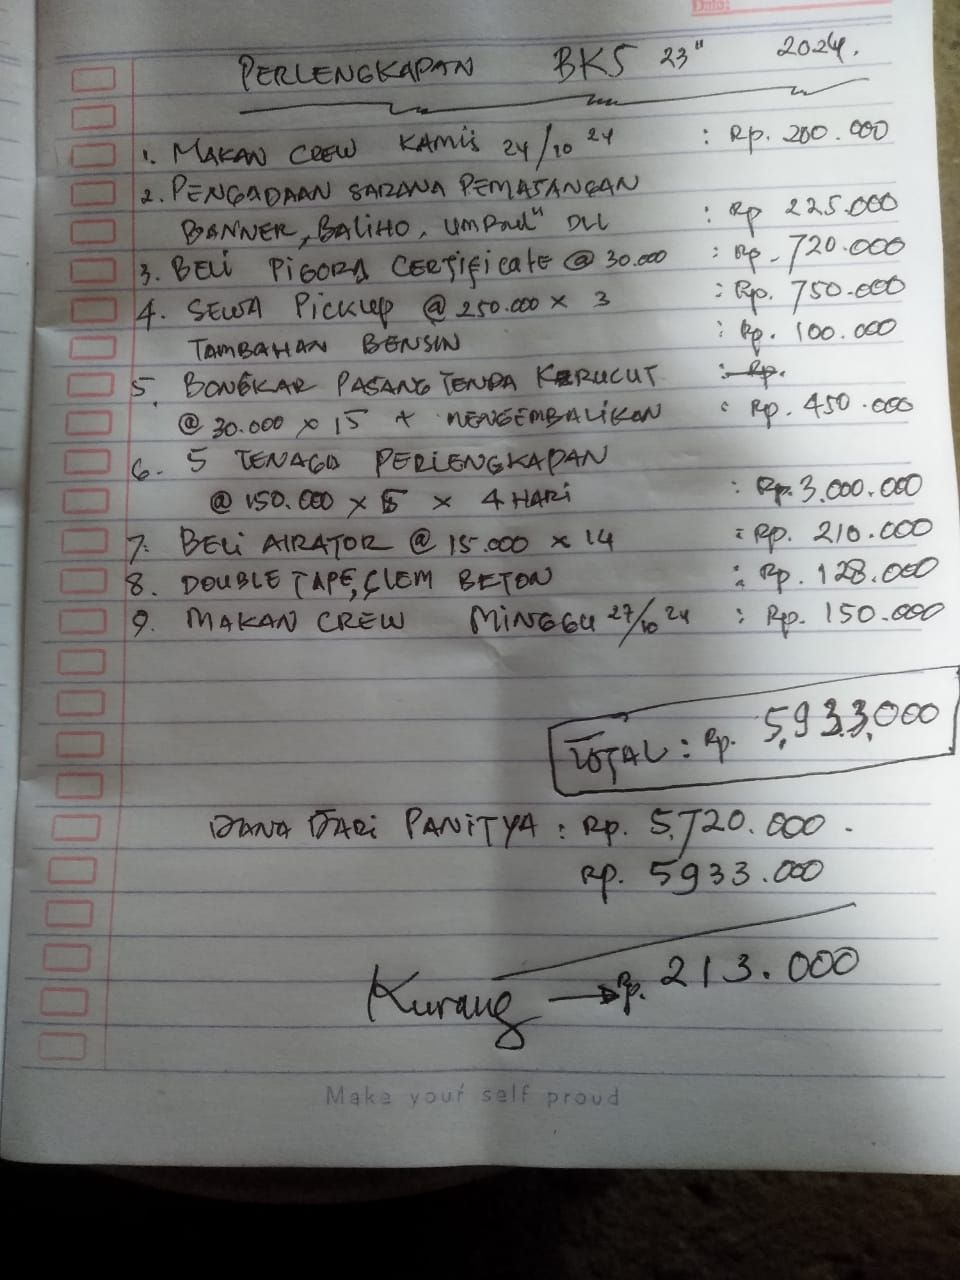 PERLENGKAPAN BKS 23" 2024.
1. MAKAN CREW KAMIS 24/10 24 : Rp. 200.000
2. PENGADAAN SARANA PEMASANGAN
BANNER, BALIHO, UMBUL" DLL : Rp 225.000
3. BELI PIGORA CERTIFICATE @ 30.000 : Rp. 720.000
4. SEWA PICKUP @ 250.000 x 3 : Rp. 750.000
TAMBAHAN BENSIN : Rp. 100.000
5. BONGKAR PASANG TENDA KERUCUT : Rp.
@ 30.000 x 15 + MENGEMBALIKAN : Rp. 450.000
6. 5 TENAGA PERLENGKAPAN
@ 150.000 x 5 x 4 HARI : Rp. 3.000.000
7. BELI AIRATOR @ 15.000 x 14 : Rp. 210.000
8. DOUBLE TAPE, CLEM BETON : Rp. 128.000
9. MAKAN CREW MINGGU 27/10 24 : Rp. 150.000
TOTAL : Rp. 5,933,000
DANA DARI PANITYA : Rp. 5,720.000.
Rp. 5933.000
Kurang → Rp. 213.000
Make your self proud